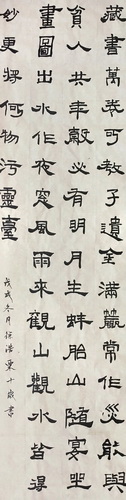 藏書萬卷可教子遺金滿籯常作災能與
貧人共年穀必有明月生蚌胎山隨宴坐
畫圖出水作夜窓風雨來觀山觀水皆得
妙更將何物污靈臺
戊戌冬月徐浩十歲書